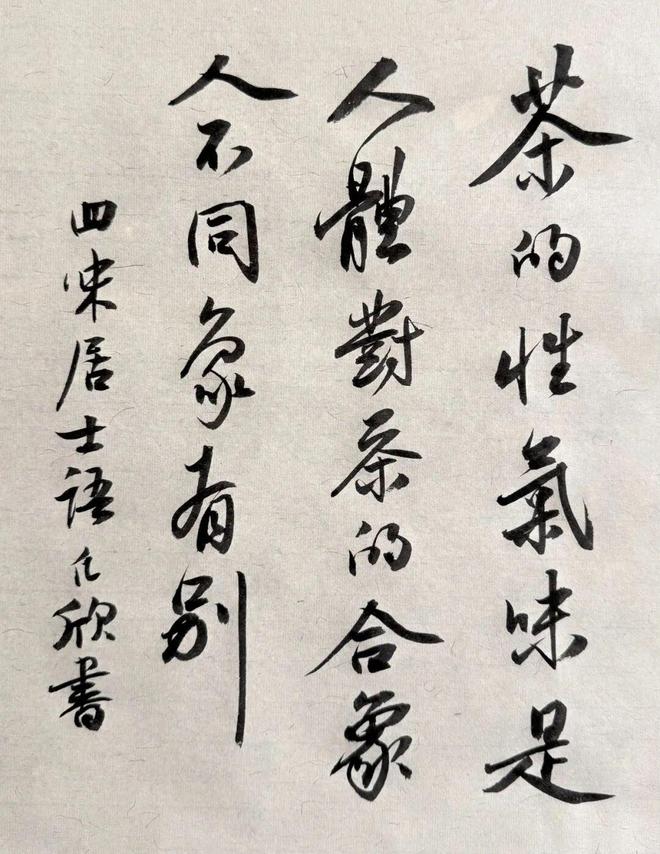 茶的性氣味是
人體對茶的合象
人不同象有別
四味居士語 欣書